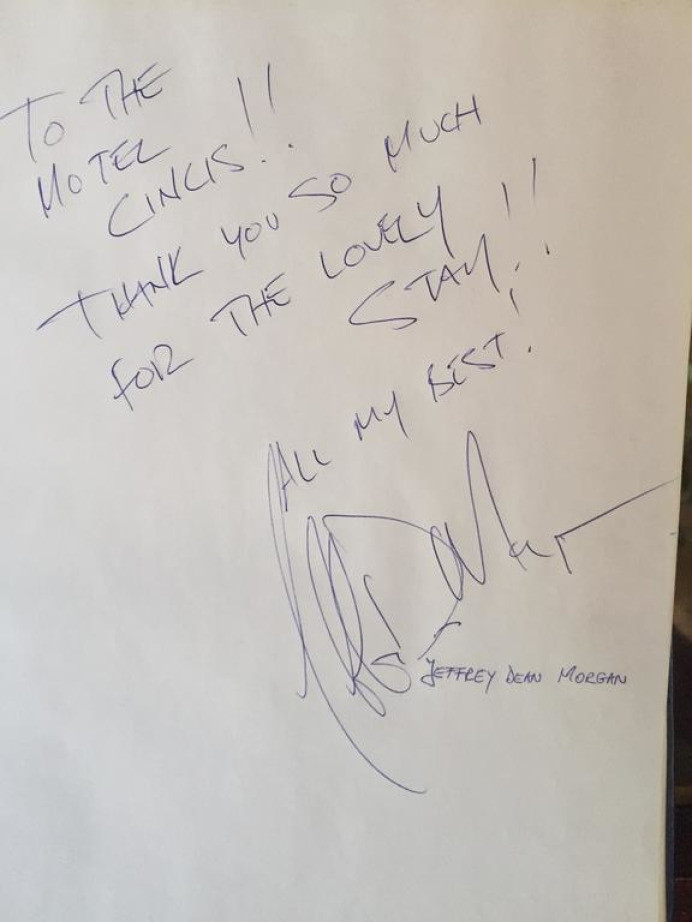 TO THE
MOTEL
CINCIS!!
THANK YOU SO MUCH
FOR THE LOVELY
STAY!!
ALL MY BEST!
JEFFREY DEAN MORGAN